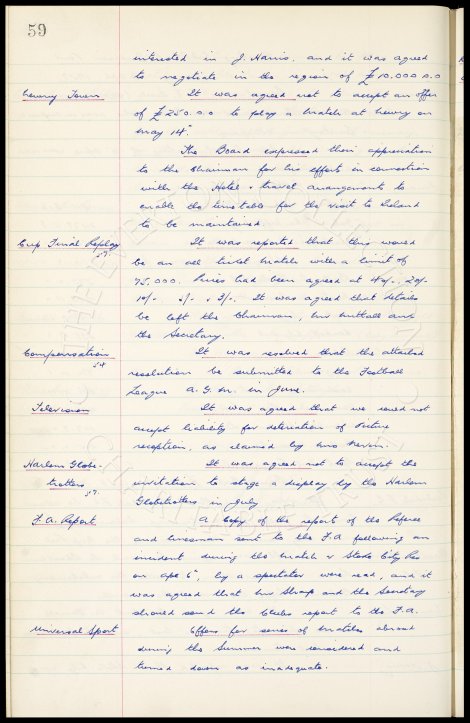 59
interested in J. Harris, and it was agreed
to negotiate in the region of £10.000.0.0
Newry Town It was agreed not to accept an offer
of £250.0.0 to play a match at Newry on
May 14th.
The Board expressed their appreciation
to the Chairman for his efforts in connection
with the Hotel & travel arrangements to
enable the timetable for the visit to Ireland
to be maintained.
Cup Final Replay It was reported that this would
57. be an all ticket match with a limit of
75,000. Prices had been agreed at 40/-, 20/-
10/- 5/- & 3/-. It was agreed that details
be left the Chairman, Mr Nuttall and
the Secretary.
Compensation It was resolved that the attached
54 resolution be submitted to the Football
League A.G.M. in June.
Television It was agreed that we could not
accept liability for deterioration of Picture
reception, as claimed by Mrs
Harlem Globe- It was agreed not to accept the
trotters 57. invitation to stage a display by the Harlem
Globetrotters in July
F.A. Report A copy of the report of the Referee
and linesman sent to the F.A following an
incident during the match v Stoke City Res
on Apl 6th, by a spectator were read, and it
was agreed that Mr Sharp and the Secretary
should send the Clubs report to the F.A.
Universal Sport Offers for series of matches abroad
during the Summer were considered and
turned down as inadequate.